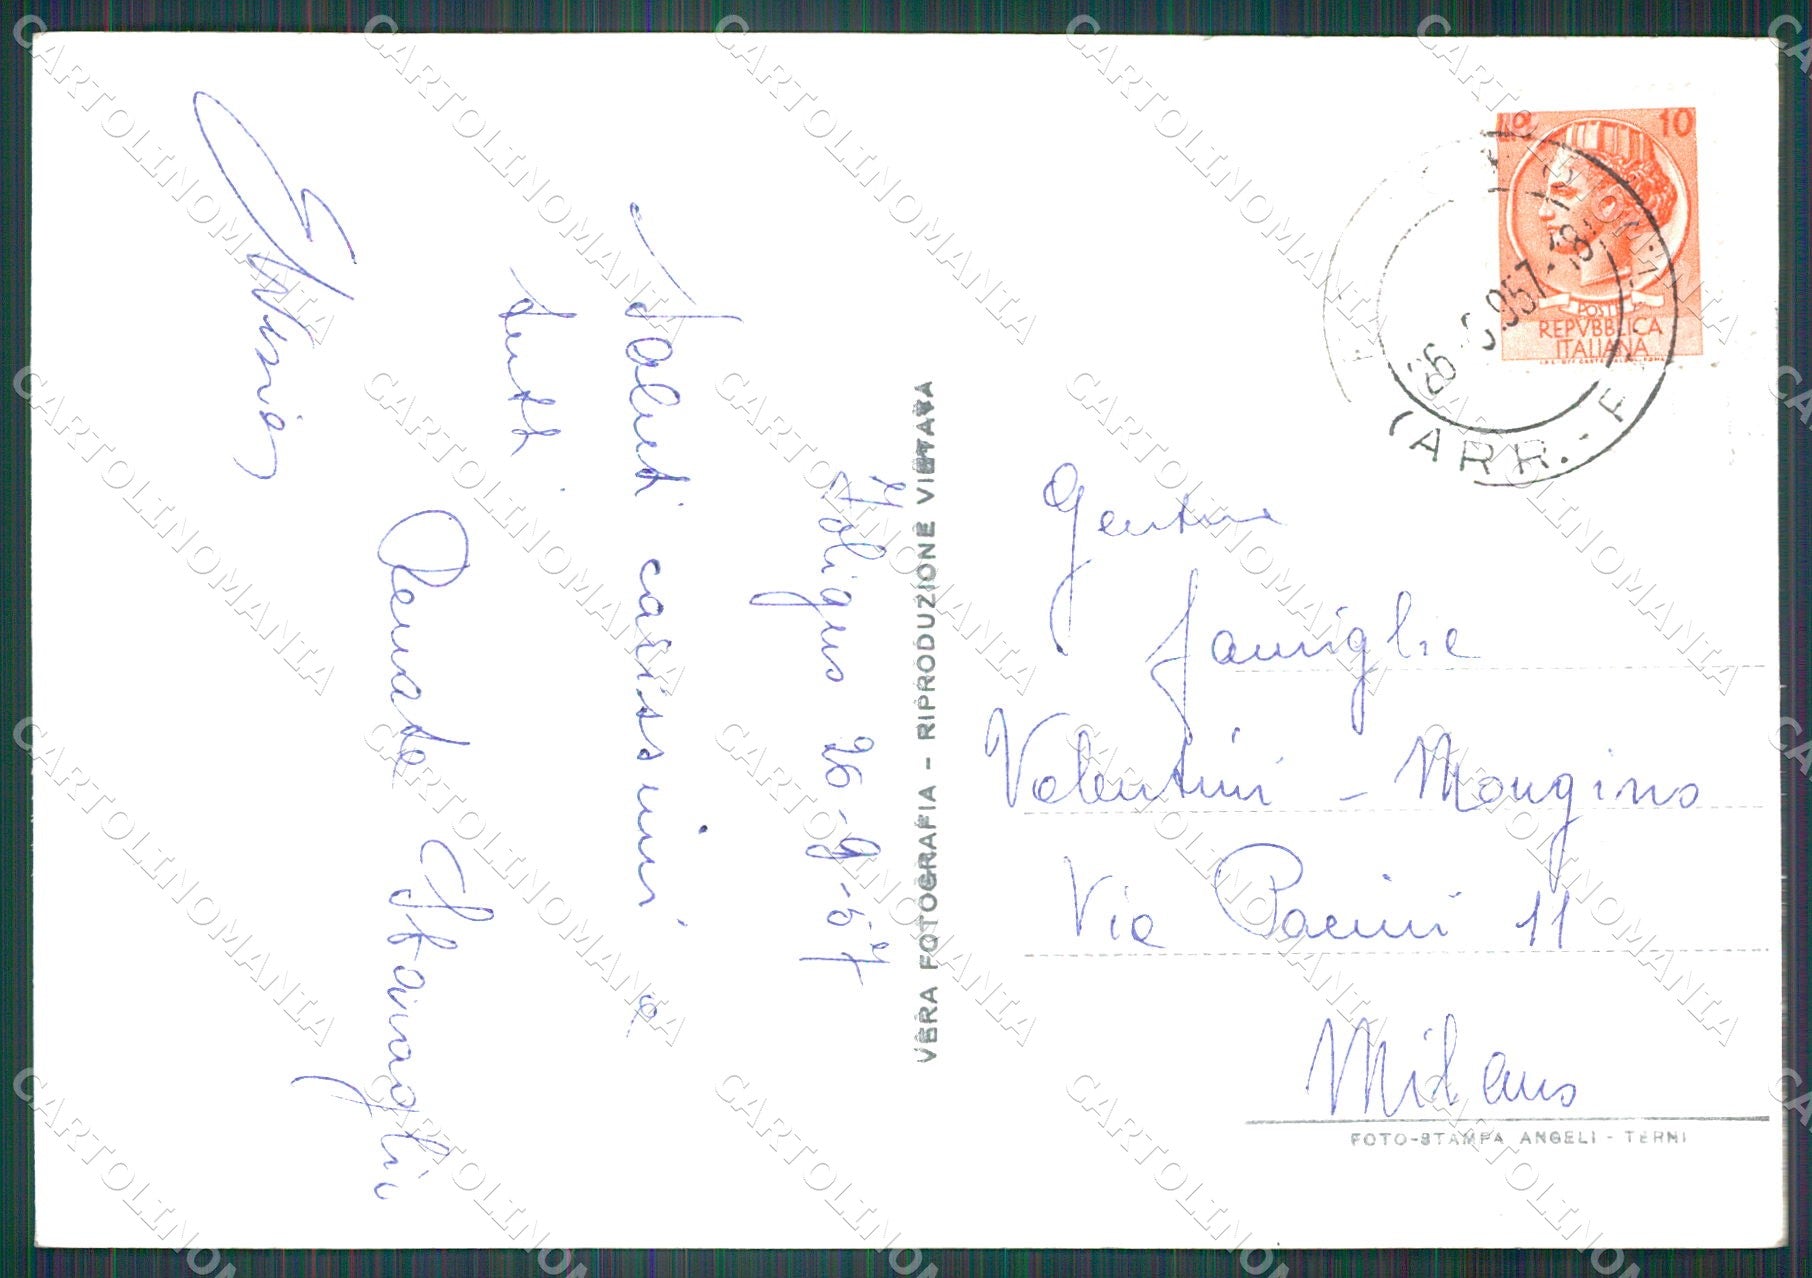 Foligno 26-9-57
Saluti carissimi a
tutti
Renato Stairaglii
VERA FOTOGRAFIA - RIPRODUZIONE VIETATA
L. 10
POSTE
REPVBBLICA
ITALIANA
26.9.957-18
(ARR.-
Gentma
famiglia
Valentini - Mongino
Via Pacini 11
Milano
FOTO-STAMPA ANGELI - TERNI
CARTOLINOMANIA